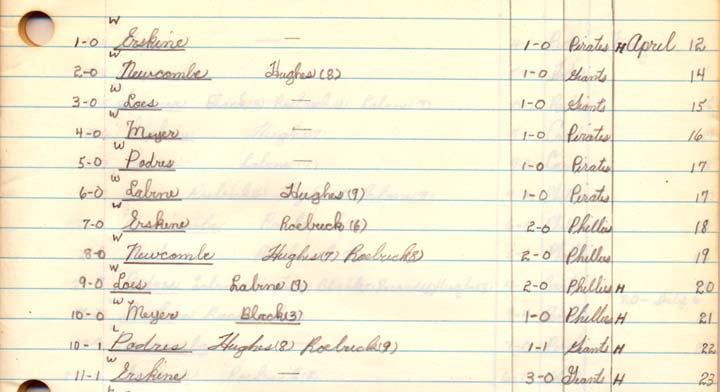 W
1-0 Erskine — 1-0 Pirates H April 12
W
2-0 Newcombe Hughes (8) 1-0 Giants 14
W
3-0 Loes — 1-0 Giants 15
W
4-0 Meyer — 1-0 Pirates 16
W
5-0 Podres — 1-0 Pirates 17
W
6-0 Labine Hughes (9) 1-0 Pirates 17
W
7-0 Erskine Roebuck (6) 2-0 Phillies 18
W
8-0 Newcombe Hughes (7) Roebuck (8) 2-0 Phillies 19
W
9-0 Loes Labine (9) 2-0 Phillies H 20
W
10-0 Meyer Black (3) 1-0 Phillies H 21
L
10-1 Podres Hughes (8) Roebuck (9) 1-1 Giants H 22
W
11-1 Erskine — 3-0 Giants H 23